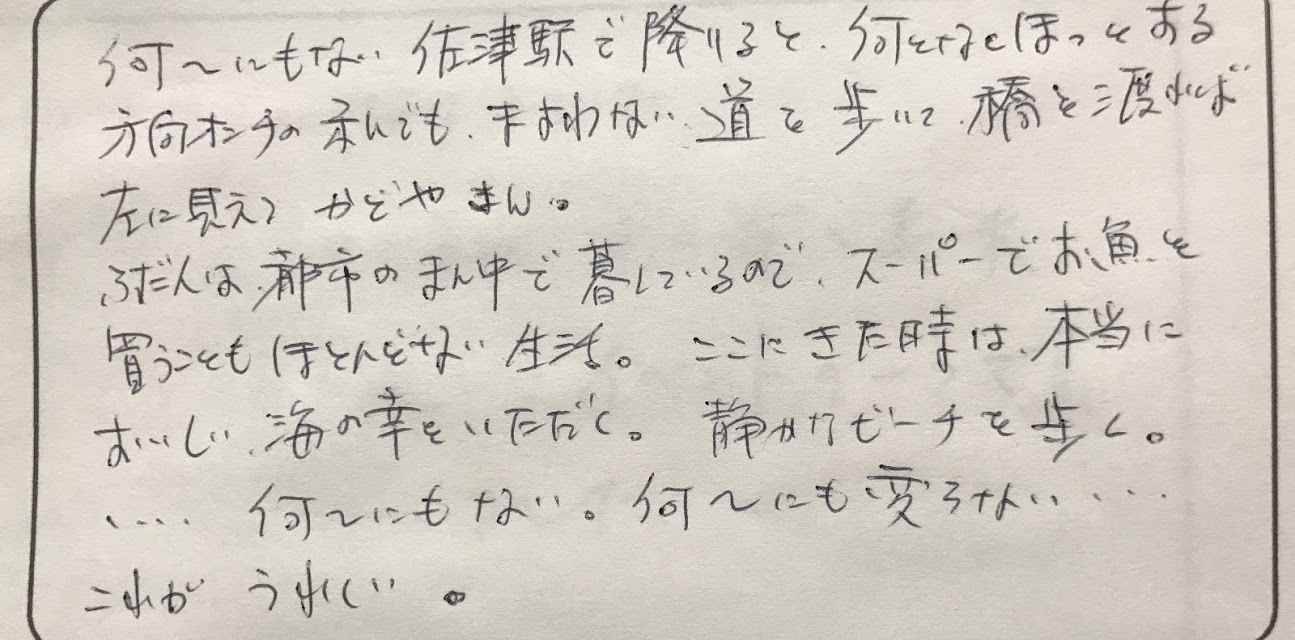 何〜にもない 佐津駅で降りると、何となくほっとする
方向オンチの 私でも、まよわない 道を 歩いて、橋を渡れば
左に見える かどやさん。
ふだんは、都市のまん中で暮しているので、スーパーでお魚を
買うことも ほとんどない 生活。 ここにきた時は、本当に
おいしい 海の幸をいただく。 静かなビーチを歩く。
‥‥ 何〜にもない。何〜にも変らない‥‥
これが うれしい。